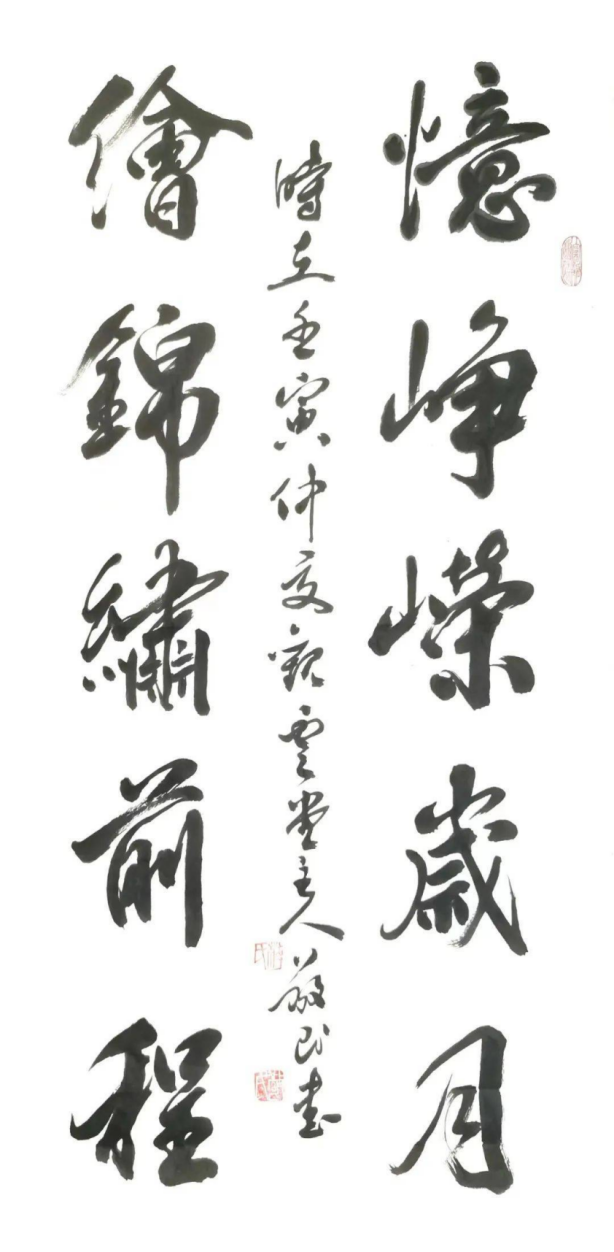 憶崢嶸歲月
繪錦繡前程
時在壬寅仲夏觀雲堂主人民書